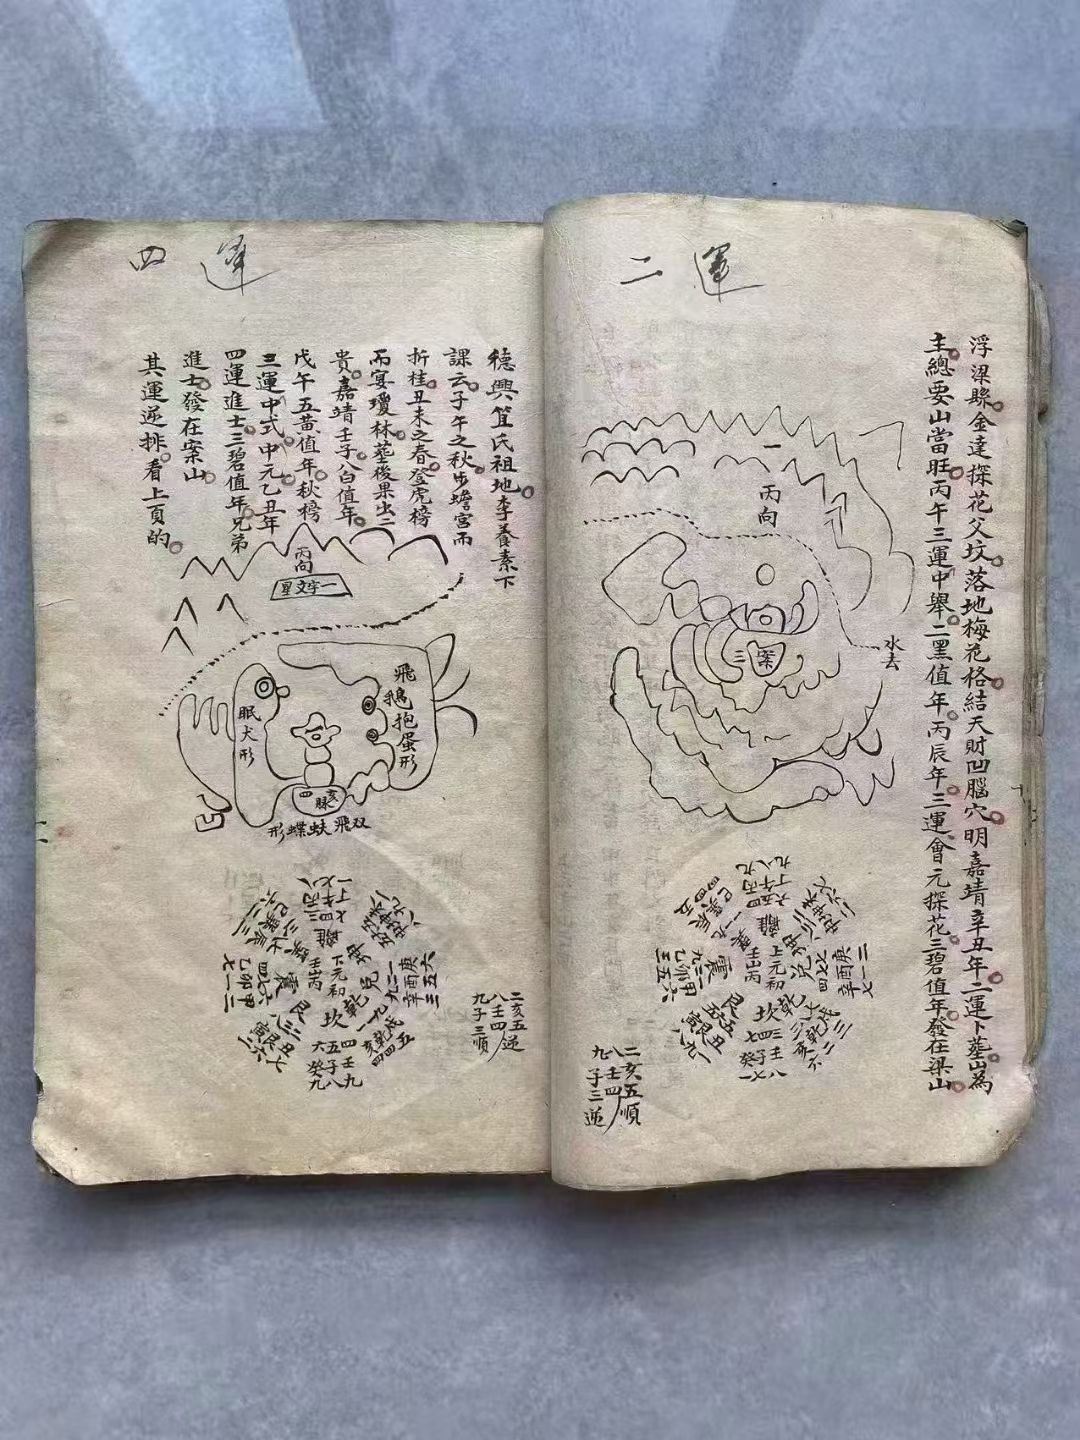 二運
浮梁縣金達探花父坟落地梅花格結天財凹腦穴明嘉靖辛丑年二運卜塟山為
主總要山當旺丙午三運中舉二黑值年丙辰年三運會元探花三碧值年發在梁山
一
丙向
水去
三案
上元初
壬山丙
離
坤
兌
乾
坎
艮
震
巽
二亥五順
八壬四
九子三逆
四運
德興笪氏祖地李養素下
課云子午之秋步蟾宮而
折桂丑未之春登虎榜
而宴瓊林塟後果出二
貴嘉靖壬子八白值年
戊午五黃值年秋榜
三運中式中元乙丑年
四運進士三碧值年兄弟
進士發在案山
其運逆排看上頁的
丙向
一字文星
飛鵝抱蛋形
眠犬形
亥脉
双飛蚨蝶形
下元初
壬山丙
離
坤
兌
乾
坎
艮
震
巽
二亥五逆
八壬四
九子三順